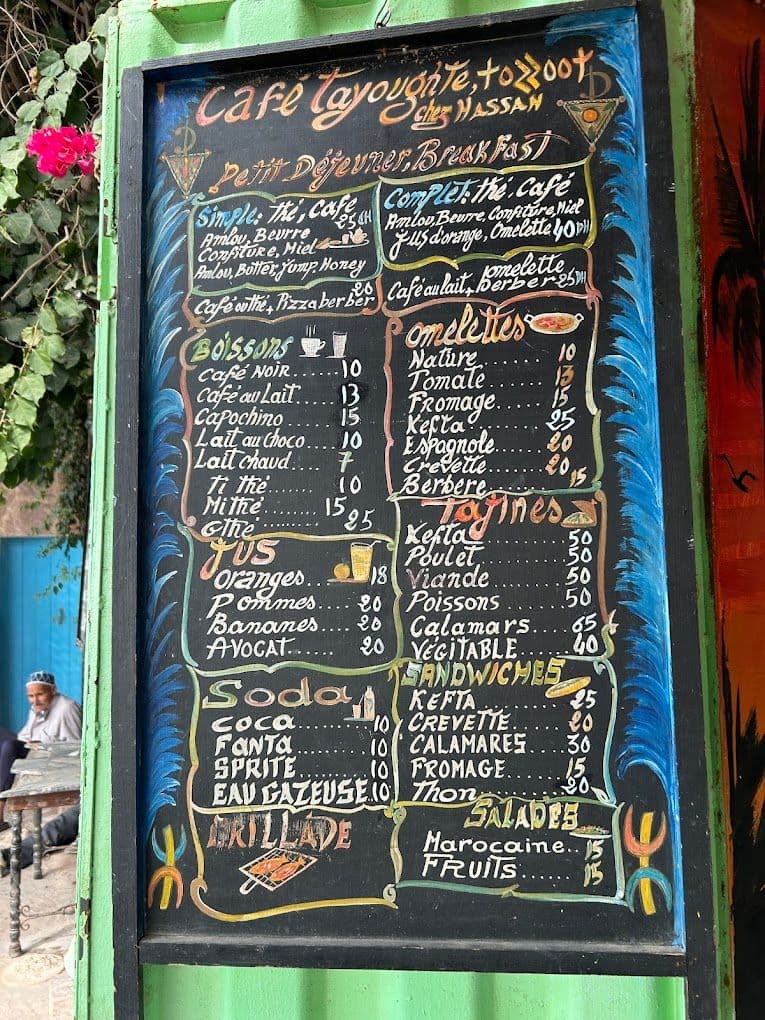 Café Tayoughte, tozzoot
chez HASSAN
Petit Déjeuner, BreakFast
Simple: thé, café
25DH
Amlou, Beurre
Confiture, Miel
Amlou, Butter, Jump, Honey
Café ou thé, Pizza berber 20
Complet: thé, Café
Amlou, Beurre, Confiture, Miel
Jus d'orange, Omelette 40DH
Café au lait, omelette
Berber 25DH
BOISSONS
Café NOIR...... 10
Café au Lait..... 13
Capochino...... 15
Lait au choco.... 10
Lait chaud.... 7
Ti thé........ 10
Mi thé........ 15
G thé......... 25
JUS
Oranges.... 18
Pommes.... 20
Bananes... 20
AVOCAT.... 20
Soda
COCA.......... 10
FANTA......... 10
SPRITE........ 10
EAU GAZEUSE.. 10
GRILLADE
Omelettes
Nature....... 10
Tomate....... 13
Fromage...... 15
Kefta........ 25
Espagnole.... 20
Crevette..... 20
Berbere...... 15
Tajines
Kefta........ 50
Poulet....... 50
Viande....... 50
Poissons..... 50
Calamars.... 65
VEGITABLE.... 40
SANDWICHES
KEFTA....... 25
CREVETTE.... 20
CALAMARES... 30
FROMAGE..... 15
Thon........ 20
SALADES
Marocaine.. 15
FRUITS..... 15